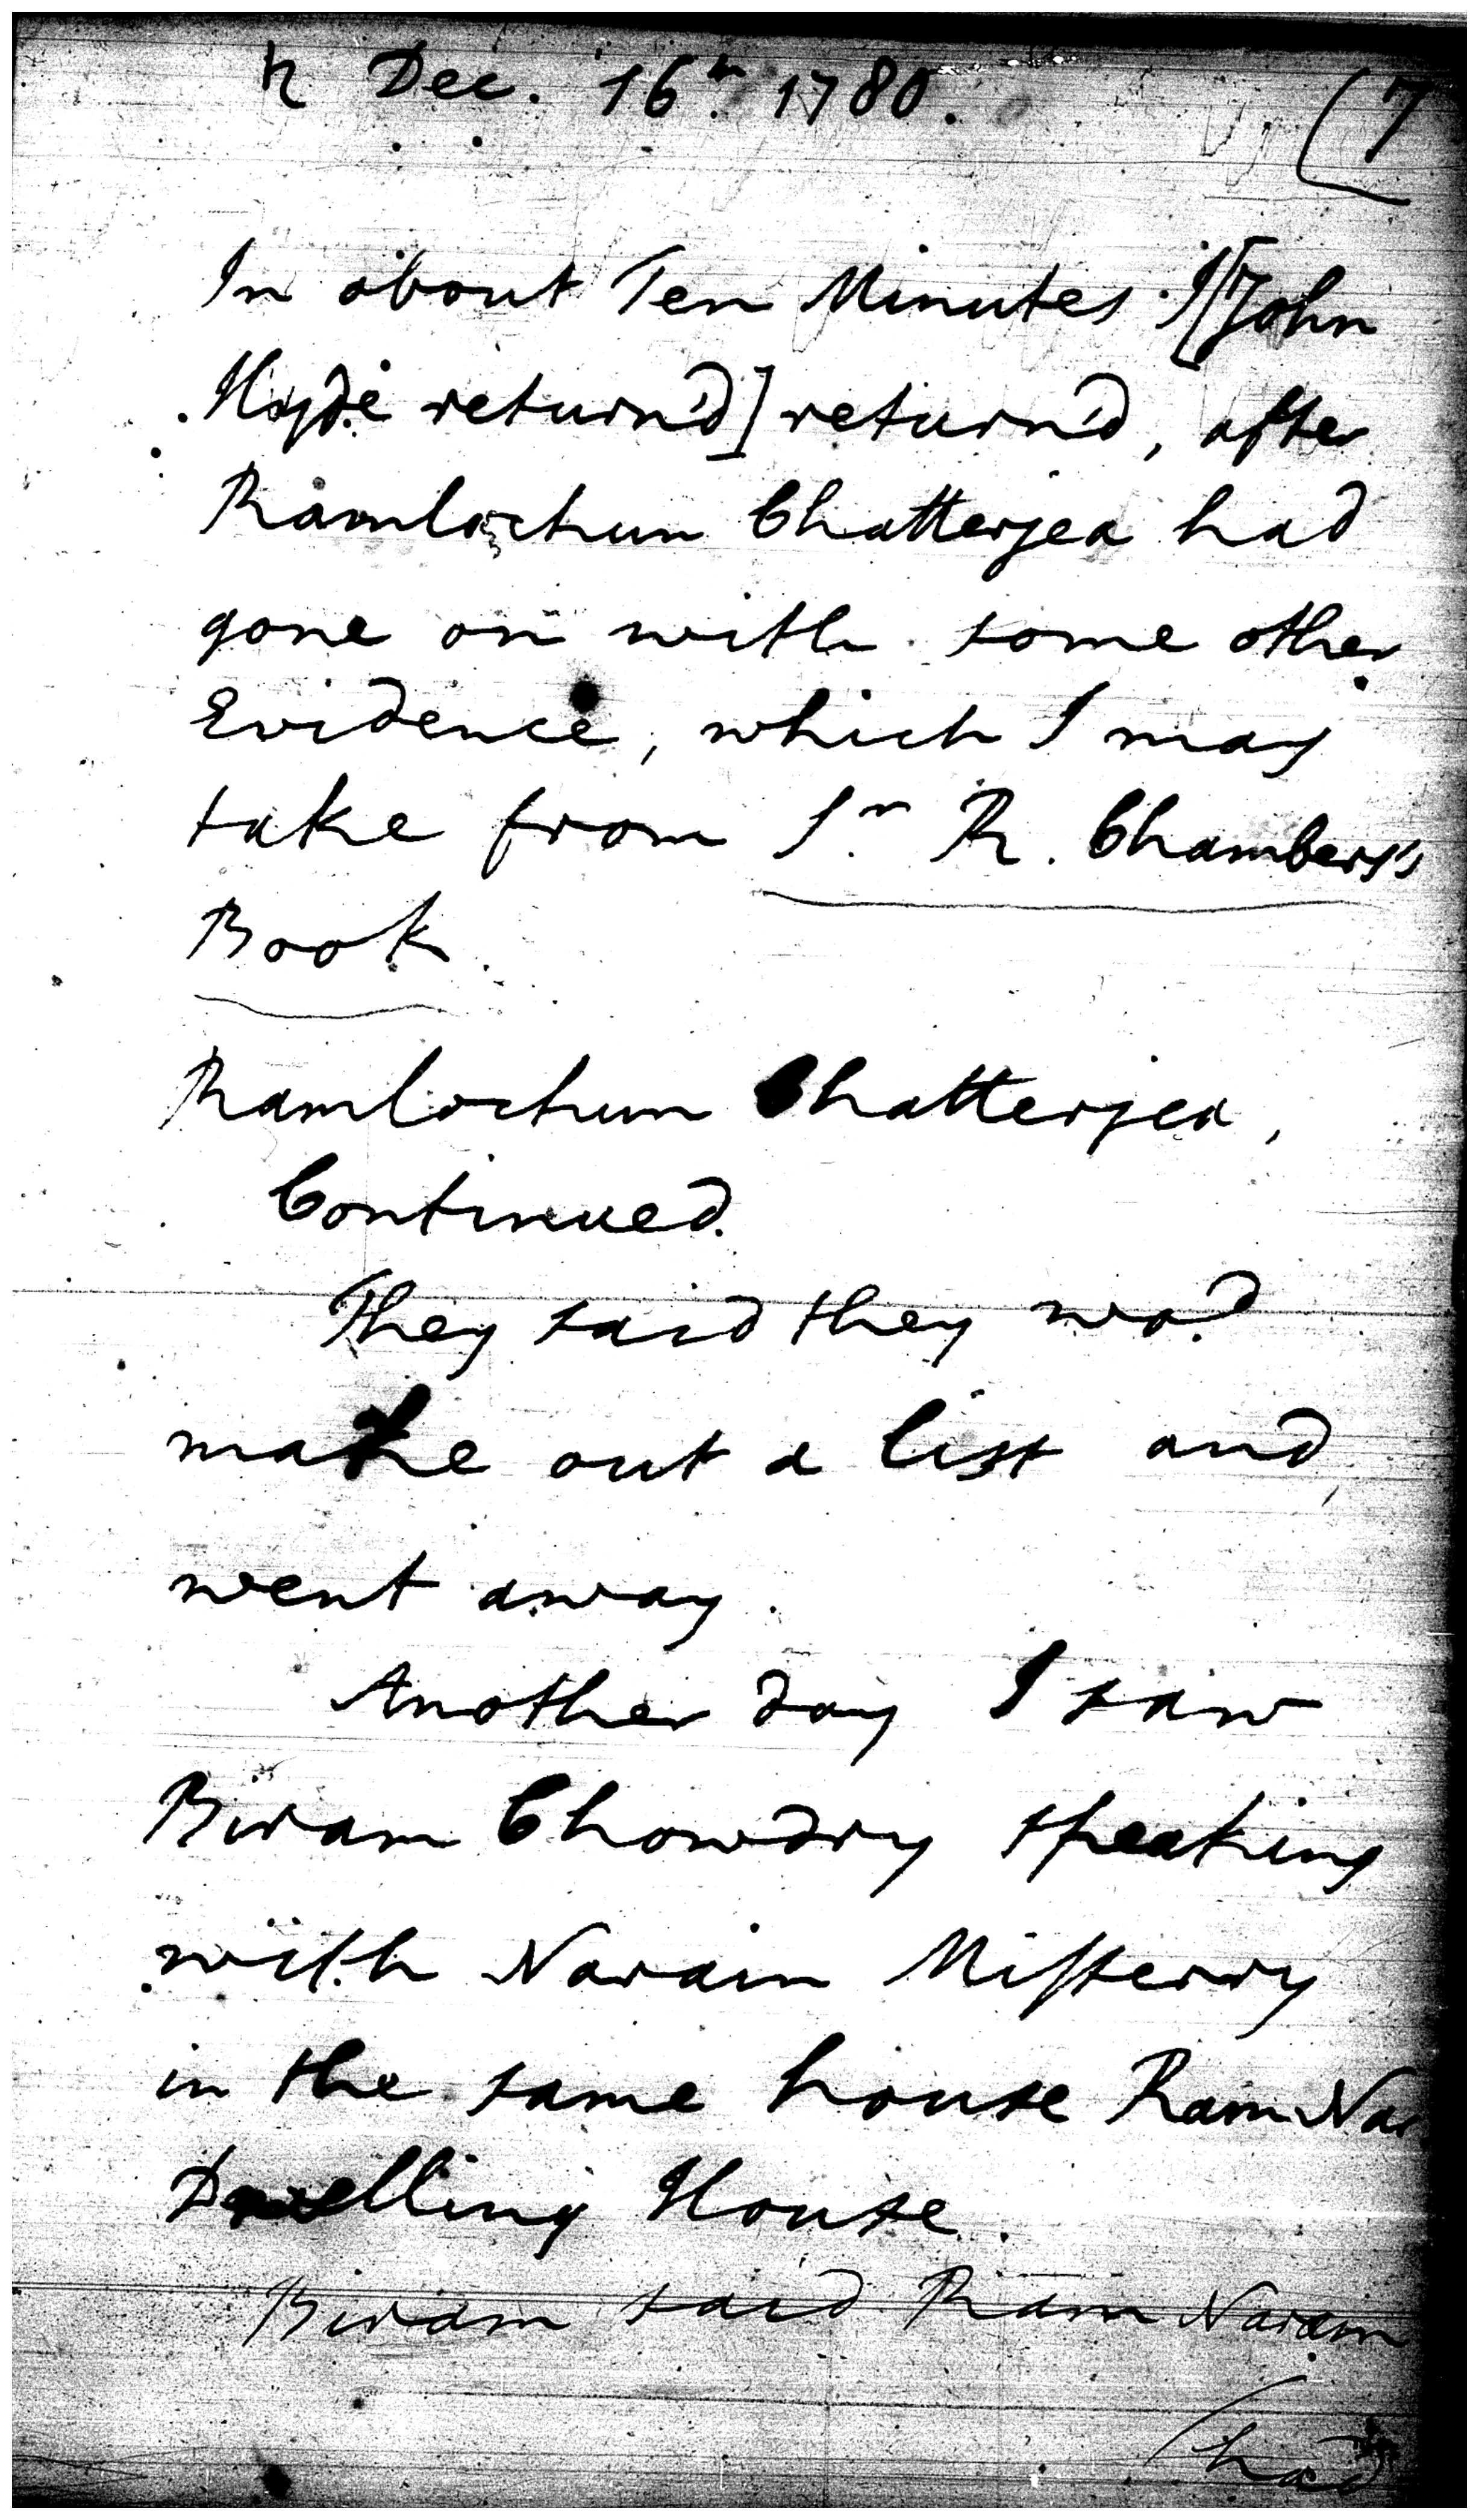 ♄ Dec. 16th. 1780.
(7
In about Ten Minutes I [John
Hyde return'd] return'd, after
Ramlochun Chatterjea had
gone on with some other
Evidence, which I may
take from Sr. R. Chambers's
Book.
Ramlochun Chatterjea,
Continued.
They said they wod.
make out a list and
went away.
Another day I saw
Biram Chowdry speaking
with Narain Misterry
in the same house Ram Nar
Dwelling House.
Biram said Ram Narain
(had